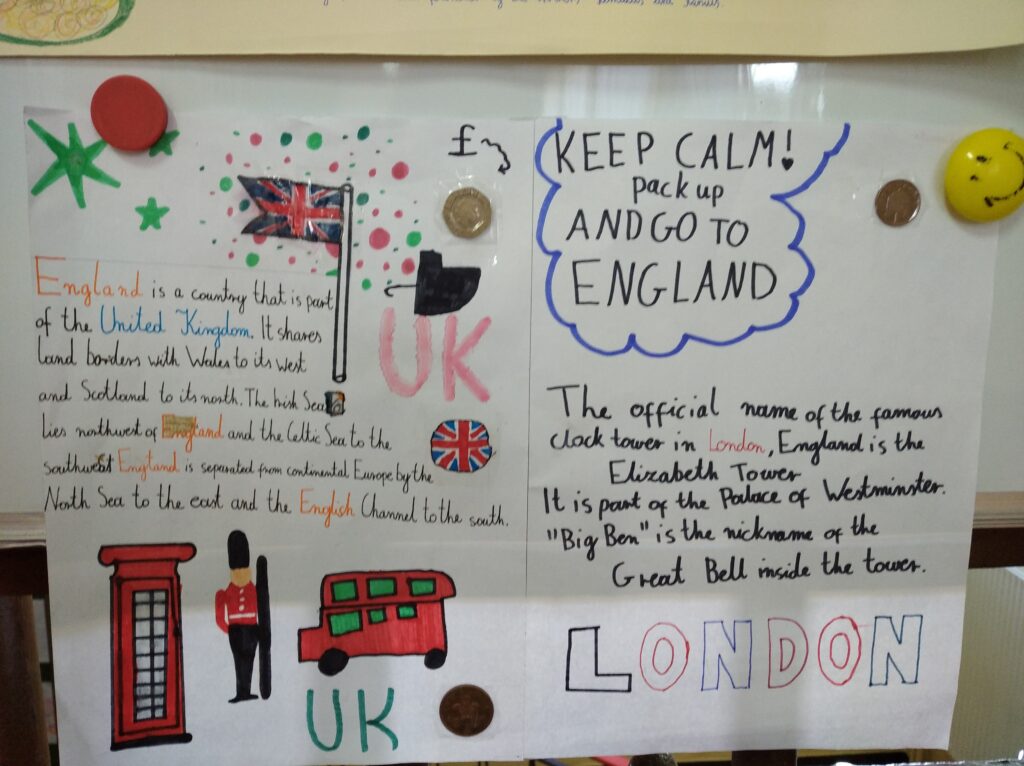 £
England is a country that is part
of the United Kingdom. It shares
land borders with Wales to its west
and Scotland to its north. The Irish Sea
lies northwest of England and the Celtic Sea to the
southwest England is separated from continental Europe by the
North Sea to the east and the English Channel to the south.
UK
UK
KEEP CALM!
pack up
AND GO TO
ENGLAND
The official name of the famous
clock tower in London, England is the
Elizabeth Tower
It is part of the Palace of Westminster.
"Big Ben" is the nickname of the
Great Bell inside the tower.
LONDON